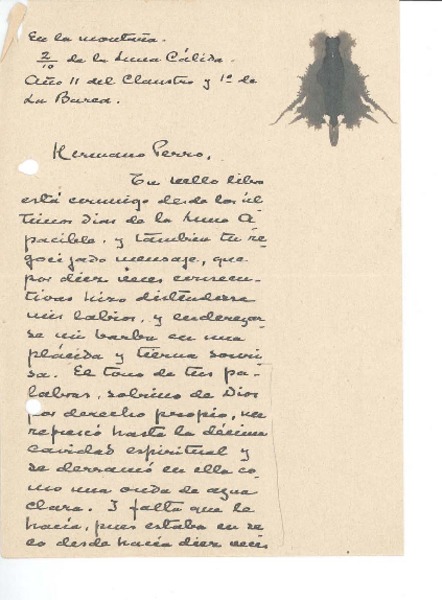 En la montaña.
2/10 de la Luna Cálida.
Año 11 del Claustro y 1º de
La Barca.
Hermano Perro,
Tu bello libro
está conmigo desde los úl
timos dias de la Luna A
pacible, y tambien tu re
gocijado mensaje, que
por diez veces consecu-
tivas hizo distenderse
mis labios, y enderezar
se mi barba en una
plácida y tierna sonri
sa. El tono de tus pa-
labras, sobrino de Dios
por derecho propio, me
repercó hasta la décima
cavidad espiritual y
se derramó en ella co
mo una onda de agua
clara. I falta que le
hacía, pues estaba en se
co desde hacía diez